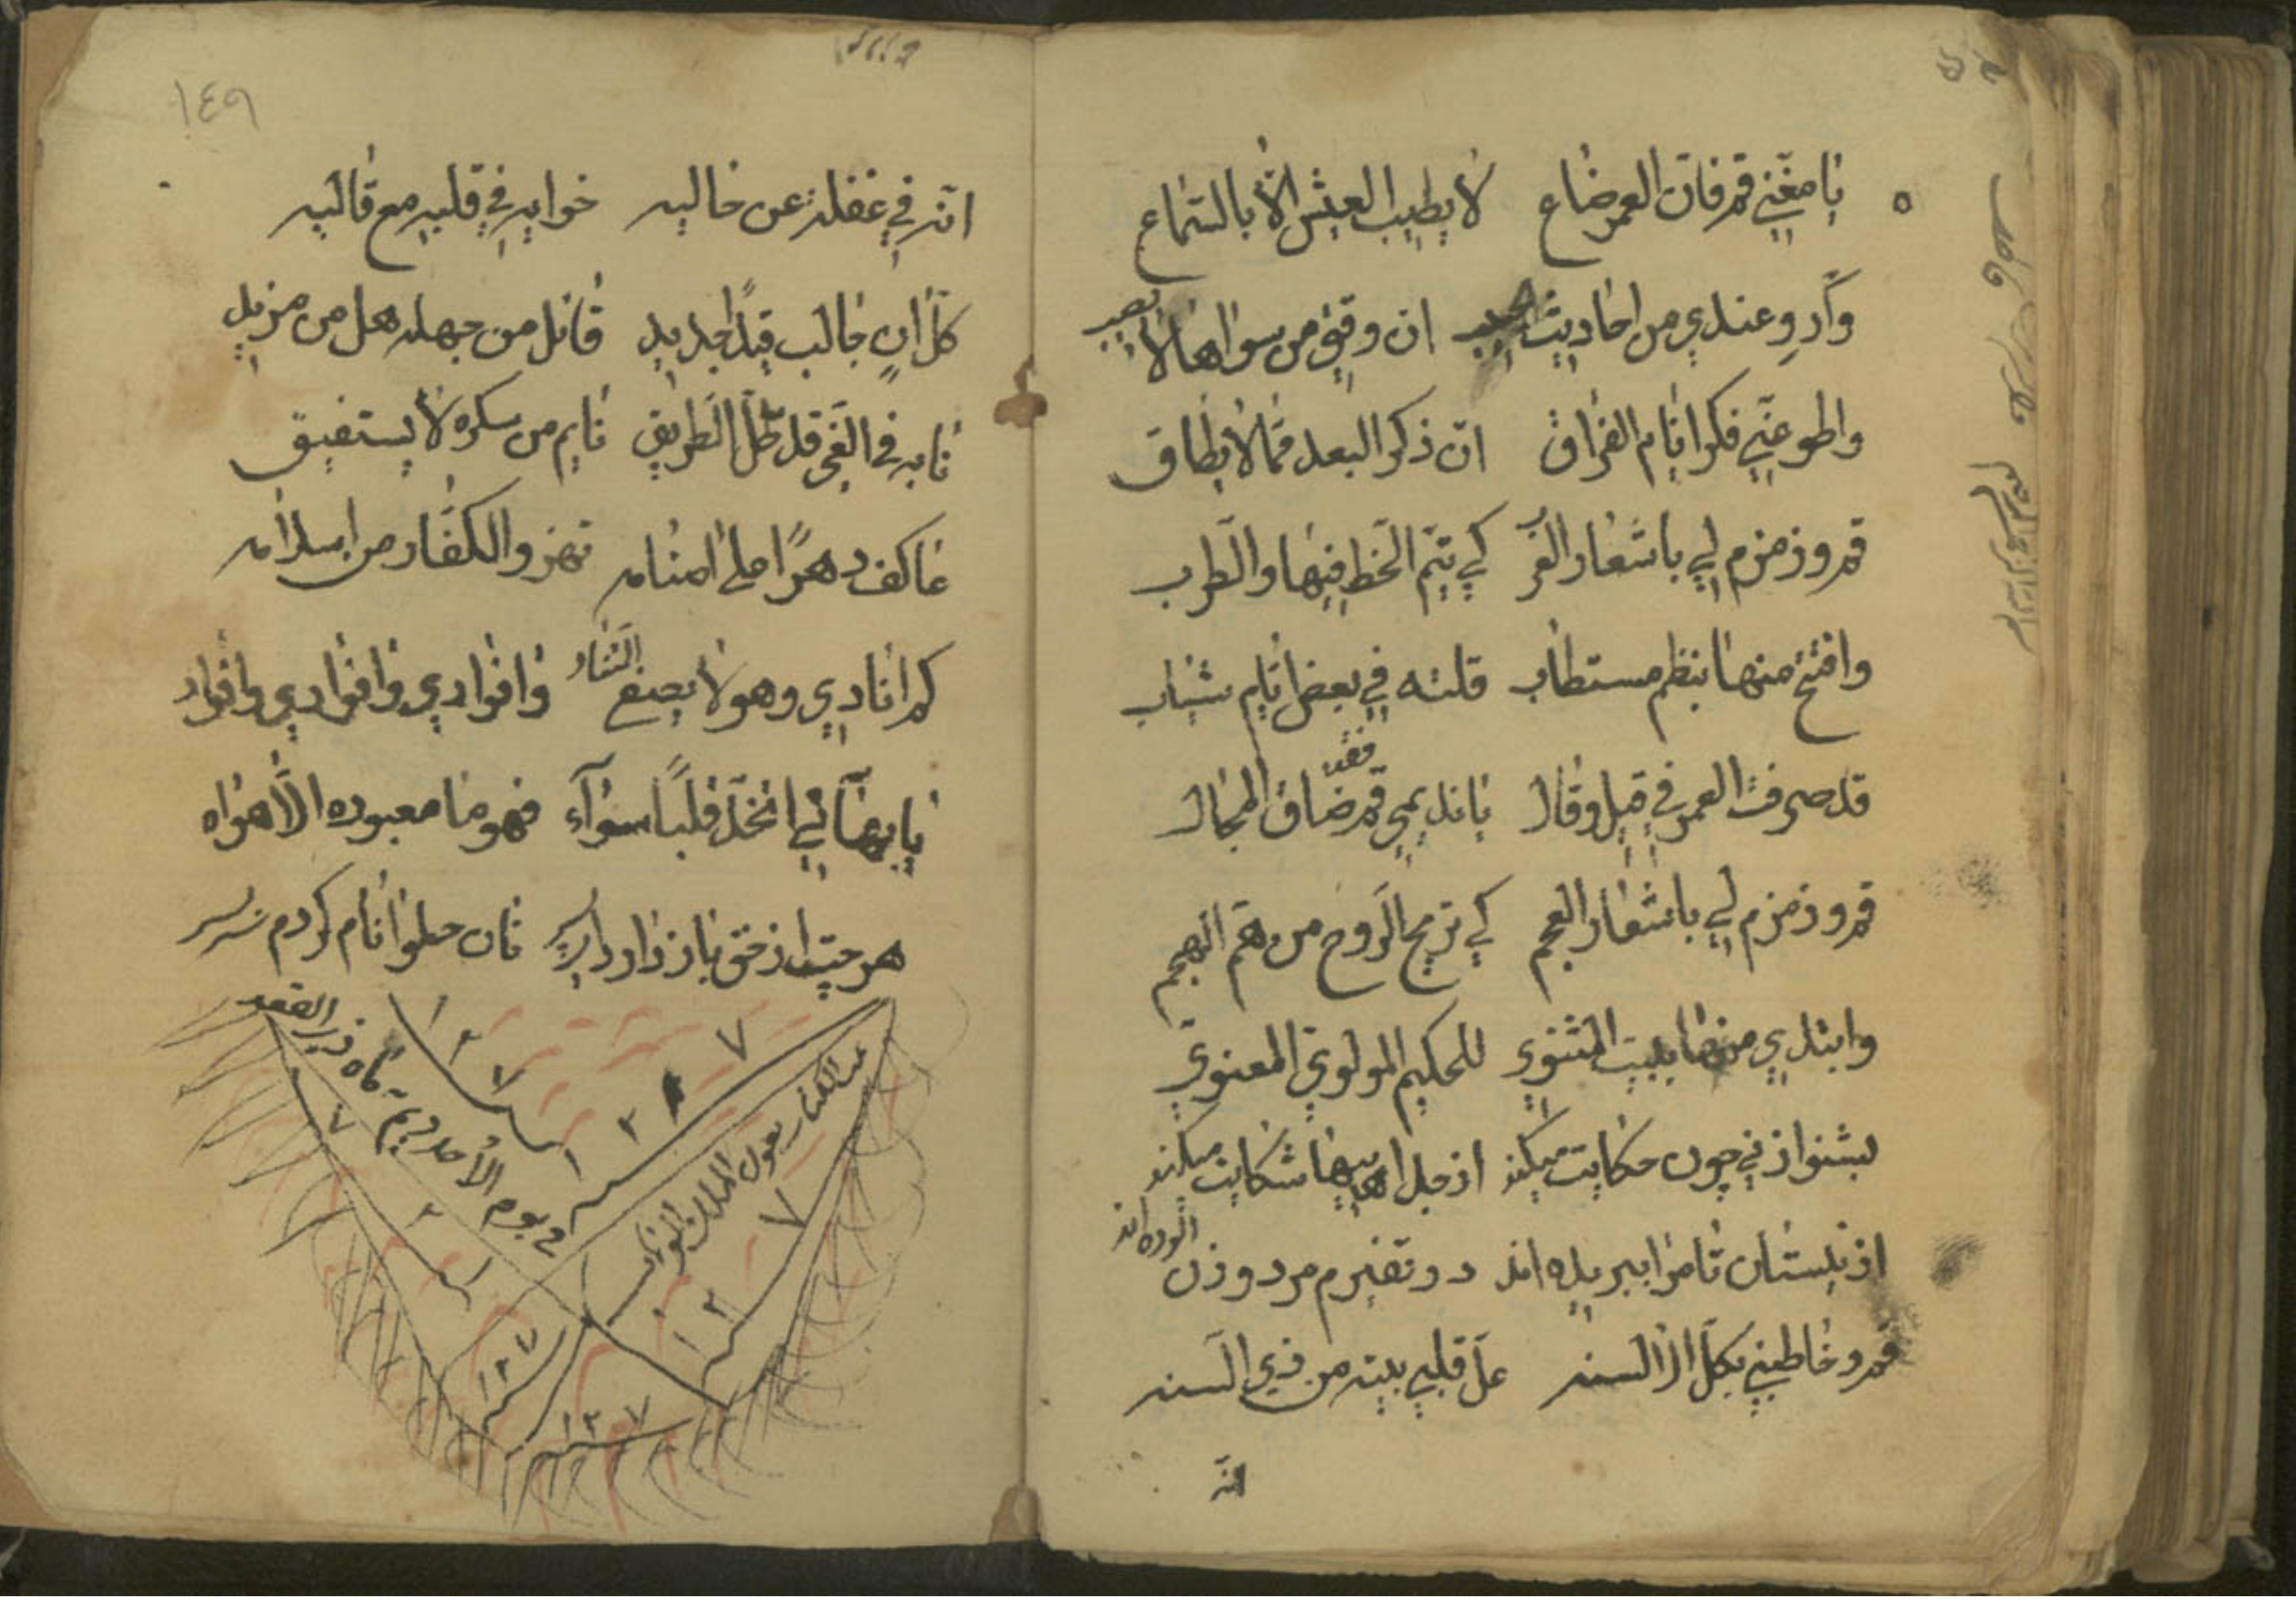 يا مغني قم فان العمر ضاع لا يطيب العيش الا بالسماع
وارو عندي من احاديث الحبيب ان وقتي من سواها لا يصيب
واطو عني فكر ايام الفراق ان ذكر البعد مما لا يطاق
قم وزمزم لي باشعار العرب كي يتم الحظ فيها والطرب
وافتتح منها بنظم مستطاب قلته في بعض ايام شباب
قد صرفت العمر في قيل وقال يا نديمي قم فقد ضاق المجال
قم وزمزم لي باشعار العجم كي تريح الروح من هم الهجم
وابتدي منها ببيت المثنوي للحكيم المولوي المعنوي
بشنو از ني چون حكايت ميكند از جدايها شكايت ميكند
از نيستان تا مرا ببريده اند در نفيرم مرد و زن
قم وخاطبني بكل الالسنه عل قلبي ينته من ذي السنه
انه
١٤٩
انه في غفلة عن حاله خوابه في قلبه مع قالبه
كل ان جالب قيدا جديد قائل من جهله هل من مزيد
تايه في الغي قد ظل الطريق نايم من سكره لا يستفيق
عاكف دهرا على اصنامه تهزو الكفار من اسلامه
كم انادي وهو لا يصغ التناد وافوادي وافوادي وافواد
يا بهائي اتخذ قلبا سواه فهو ما معبوده الا هواه
هر چت از حق باز دارد اي پسر نان حلوا نام كردم سربسر
في يوم الاحد ماه ذي القعد
١٢٧
١٢٧
١٢٧
١٢٧
١٢٧
١٢٧